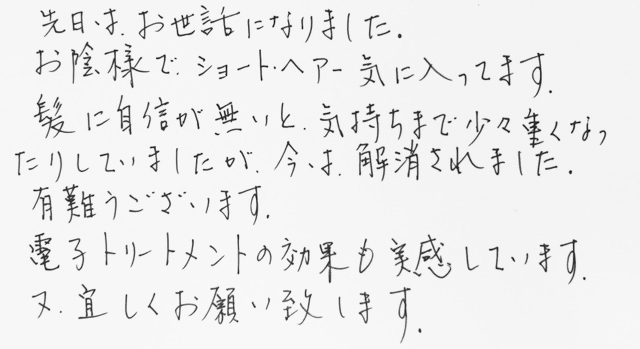 先日は、お世話になりました。
お陰様で、ショート・ヘアー気に入ってます。
髪に自信が無いと、気持ちまで少々重くなっ
たりしていましたが、今は、解消されました。
有難うございます。
電子トリートメントの効果も実感しています。
又、宜しくお願い致します。